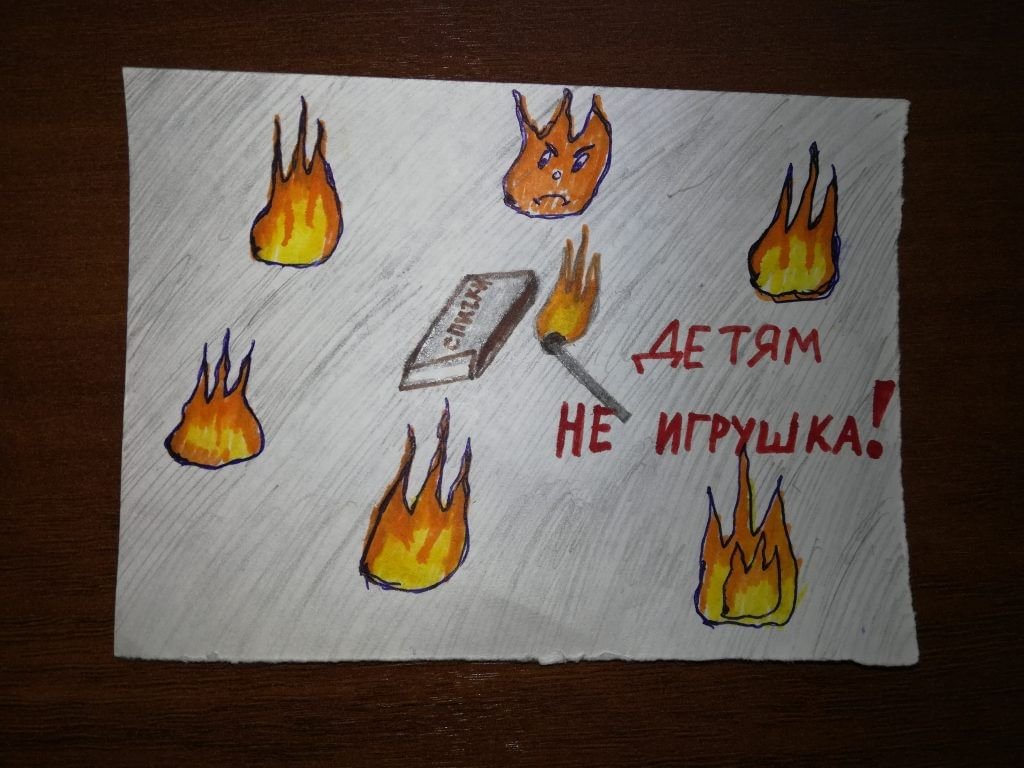 спички
ДЕТЯМ
НЕ ИГРУШКА!